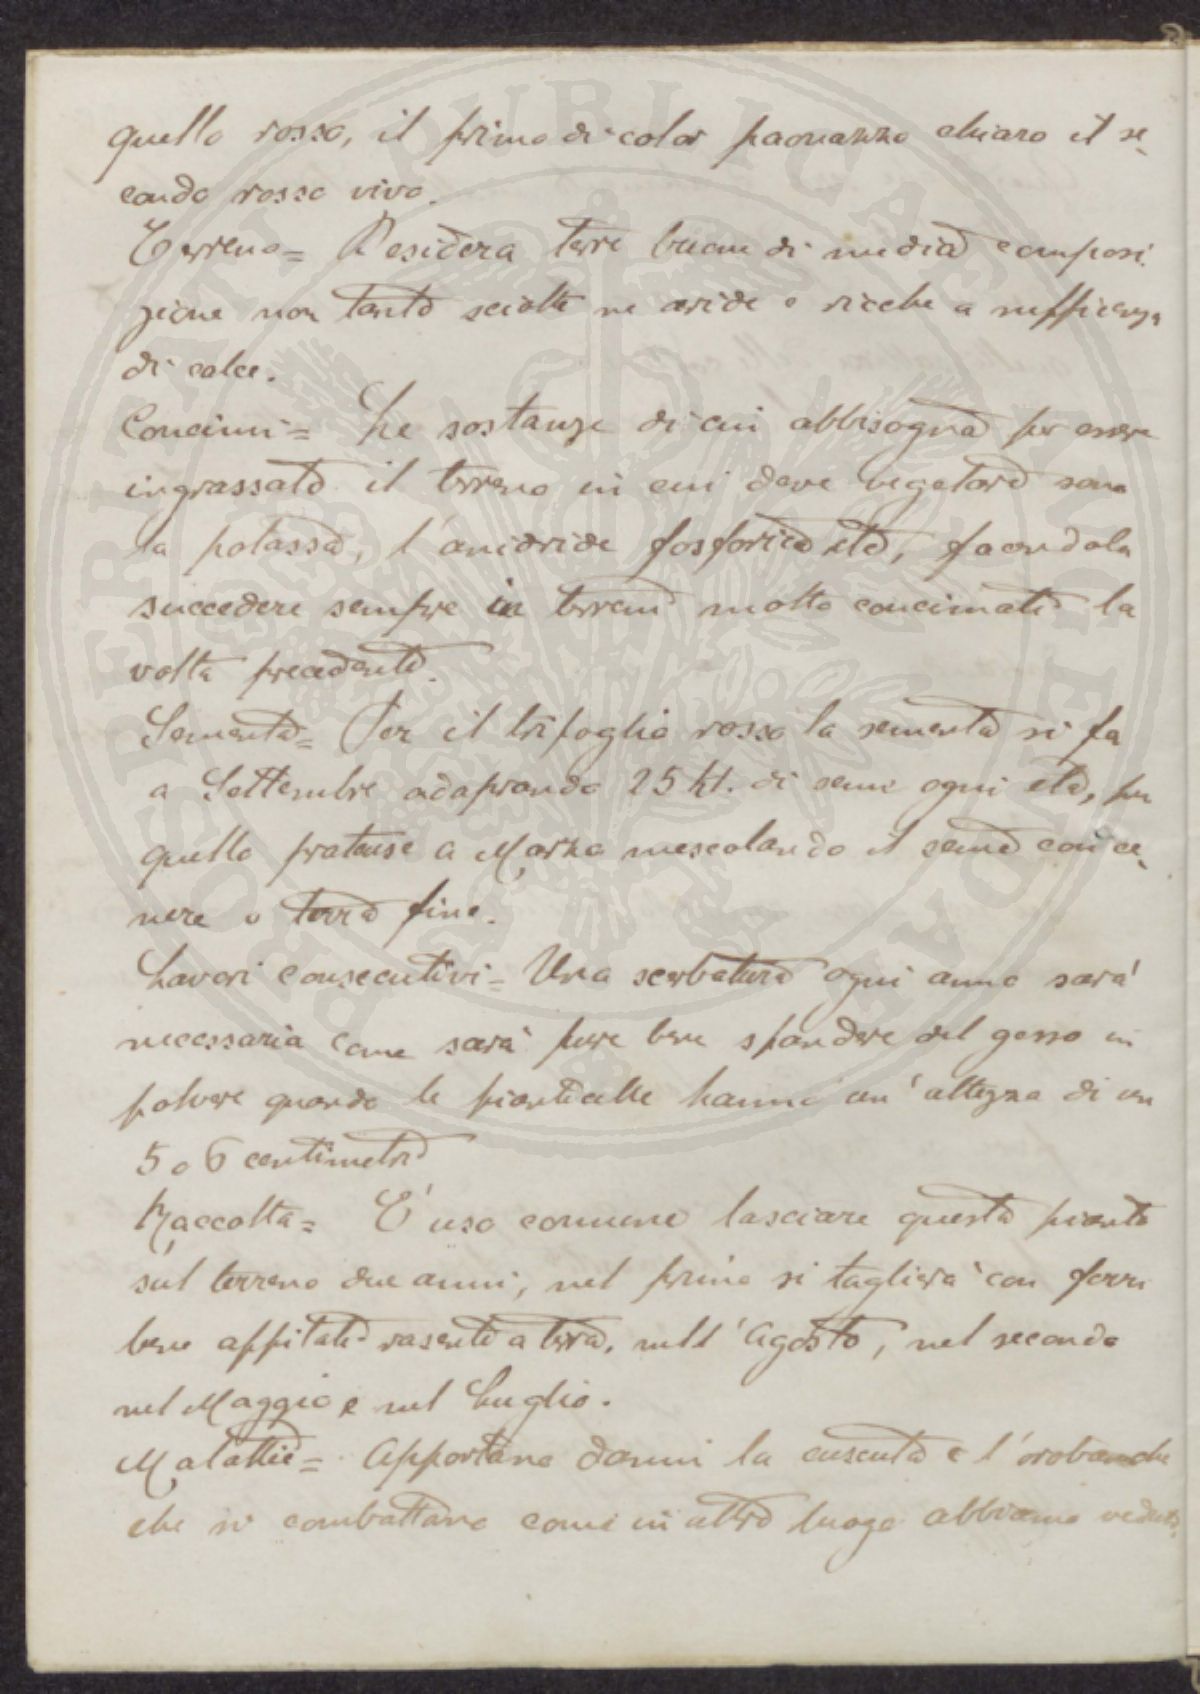 quello rosso, il primo di color paonazzo chiaro il se-
condo rosso vivo.
Terreno = Desidera terre buone di media composi-
zione non tanto sciolte ne aride e ricche a sufficenza
di calce.
Concimi = Le sostanze di cui abbisogna per essere
ingrassato il terreno in cui deve vegetare sono
la potassa, l'anidride fosforica etc, facendola
succedere sempre in terreni molto concimati la
volta precedente.
Sementa = Per il trifoglio rosso la sementa si fa
a Settembre adoprando 25 Kl. di seme ogni eta, per
quello pratense a Marzo mescolando il seme con ce-
nere o terra fine.
Lavori consecutivi = Una scerbatura ogni anno sarà
necessaria come sarà pure bene spandere del gesso in
polvere quando le pianticelle hanno un'altezza di un
5 o 6 centimetri
Raccolta = E' uso comune lasciare questa pianta
sul terreno due anni, nel primo si taglierà con ferri
bene affilati rasente a terra, nell'Agosto, nel secondo
nel Maggio e nel Luglio.
Malattie = Apportano danni la cuscuta e l'orobanche
che si combattano come in altro luogo abbiamo veduto.
PROSPERITATI PUBLICAE AUGENDAE